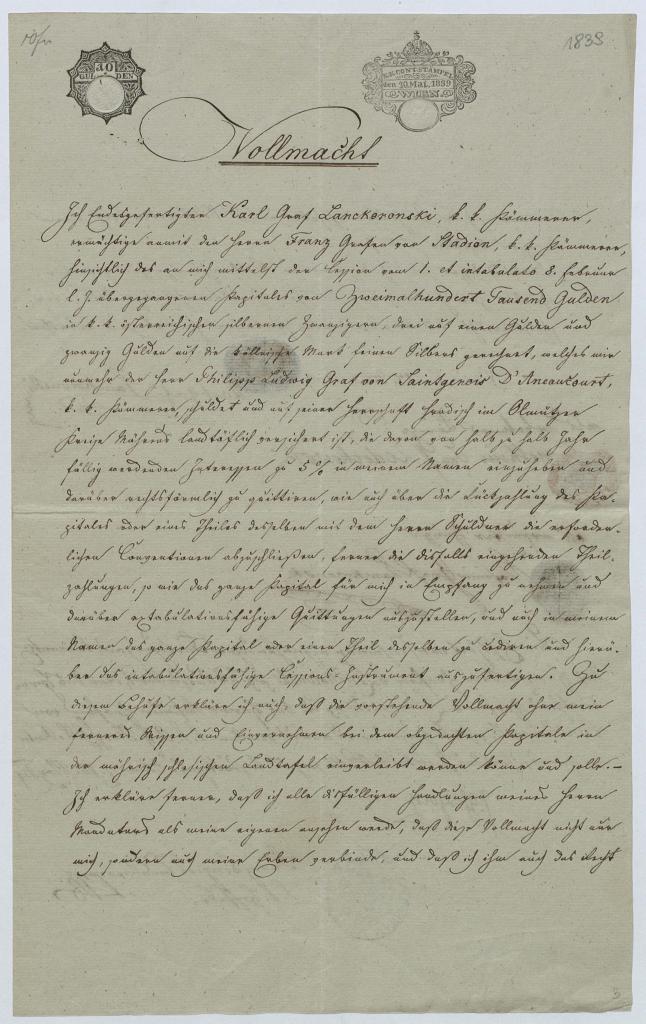 10/fr
1839
20
GULDEN
K.K. CONT. STÄMPEL
den 10. Mai. 1839
WIEN.
Vollmacht
Ich Endesgefertigter Karl Graf Lanckoronski, k. k. Kämmerer,
ermächtige anmit den Herrn Franz Grafen von Stadion, k. k. Kämmerer,
hinsichtlich des an mich mittelst der Cession vom 1. et intabulato 8. Februar
l. J. übergegangenen Kapitales von Zweimalhundert Tausend Gulden
in k. k. österreichischen silbernen Zwanzigern, drei auf einen Gulden und
zwanzig Gulden auf die köllnische Mark feinen Silbers gerechnet, welches mir
nunmehr der Herr Philipp Ludwig Graf von Saintgenois D'Aneaucourt,
k. k. Kämmerer, schuldet und auf seiner Herrschaft Hradisch im Olmützer
Kreise Mährens landtäflich versichert ist, die davon von halb zu halb Jahr
fällig werdenden Interessen zu 5 % in meinem Namen einzuheben und
darüber rechtsförmlich zu quittiren, wie auch über die Rückzahlung des Ka-
pitales oder eines Theiles desselben mit dem Herrn Schuldner die erforder-
lichen Conventionen abzuschließen, ferner die disfalls eingehenden Theil-
zahlungen, so wie das ganze Kapital für mich in Empfang zu nehmen und
darüber extabulationsfähige Quittungen auszustellen, und auch in meinem
Namen das ganze Kapital oder einen Theil desselben zu cediren und hierü-
ber das intabulationsfähige Cessions-Instrument auszufertigen. Zu
diesem Behufe erkläre ich auch, daß die vorstehende Vollmacht ohne mein
ferneres Wissen und Einvernehmen bei dem obgedachten Kapitale in
der mährisch schlesischen Landtafel einverleibt werden könne und solle. —
Ich erkläre ferner, daß ich alle disfälligen Handlungen meines Herrn
Mandatars als meine eigenen ansehen werde, daß diese Vollmacht nicht nur
mich, sondern auch meine Erben verbinde, und daß ich ihm auch das Recht